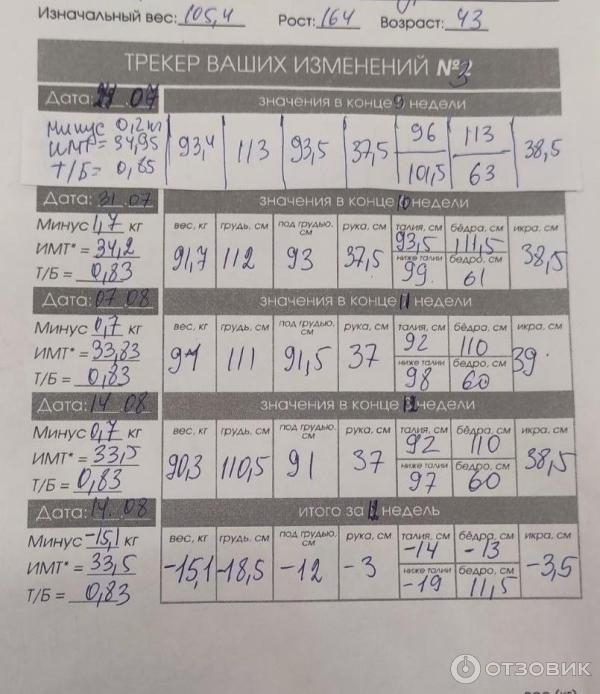 Изначальный вес: 105,4 Рост: 164 Возраст: 43
ТРЕКЕР ВАШИХ ИЗМЕНЕНИЙ №3
Дата: 24.07 значения в конце 9 недели
минус 0,2 кг
ИМТ = 34,95
Т/Б = 0,85
93,4 113 93,5 37,5 96 113 38,5
101,5 63
Дата: 31.07 значения в конце 10 недели
Минус 1,7 кг вес, кг грудь, см под грудью, см рука, см талия, см бёдра, см икра, см
ИМТ* = 34,2 91,7 112 93 37,5 93,5 111,5 38,5
ниже талии бедро, см
Т/Б = 0,83 99 61
Дата: 07.08 значения в конце 11 недели
Минус 0,7 кг вес, кг грудь, см под грудью, см рука, см талия, см бёдра, см икра, см
ИМТ* = 33,83 91 111 91,5 37 92 110 39
ниже талии бедро, см
Т/Б = 0,83 98 60
Дата: 14.08 значения в конце 12 недели
Минус 0,7 кг вес, кг грудь, см под грудью, см рука, см талия, см бёдра, см икра, см
ИМТ* = 33,5 90,3 110,5 91 37 92 110 38,5
ниже талии бедро, см
Т/Б = 0,83 97 60
Дата: 14.08 итого за 12 недель
Минус -15,1 кг вес, кг грудь, см под грудью, см рука, см талия, см бёдра, см икра, см
ИМТ* = 33,5 -15,1 -18,5 -12 -3 -14 -13 -3,5
ниже талии бедро, см
Т/Б = 0,83 -19 11,5
ОТЗОВИК